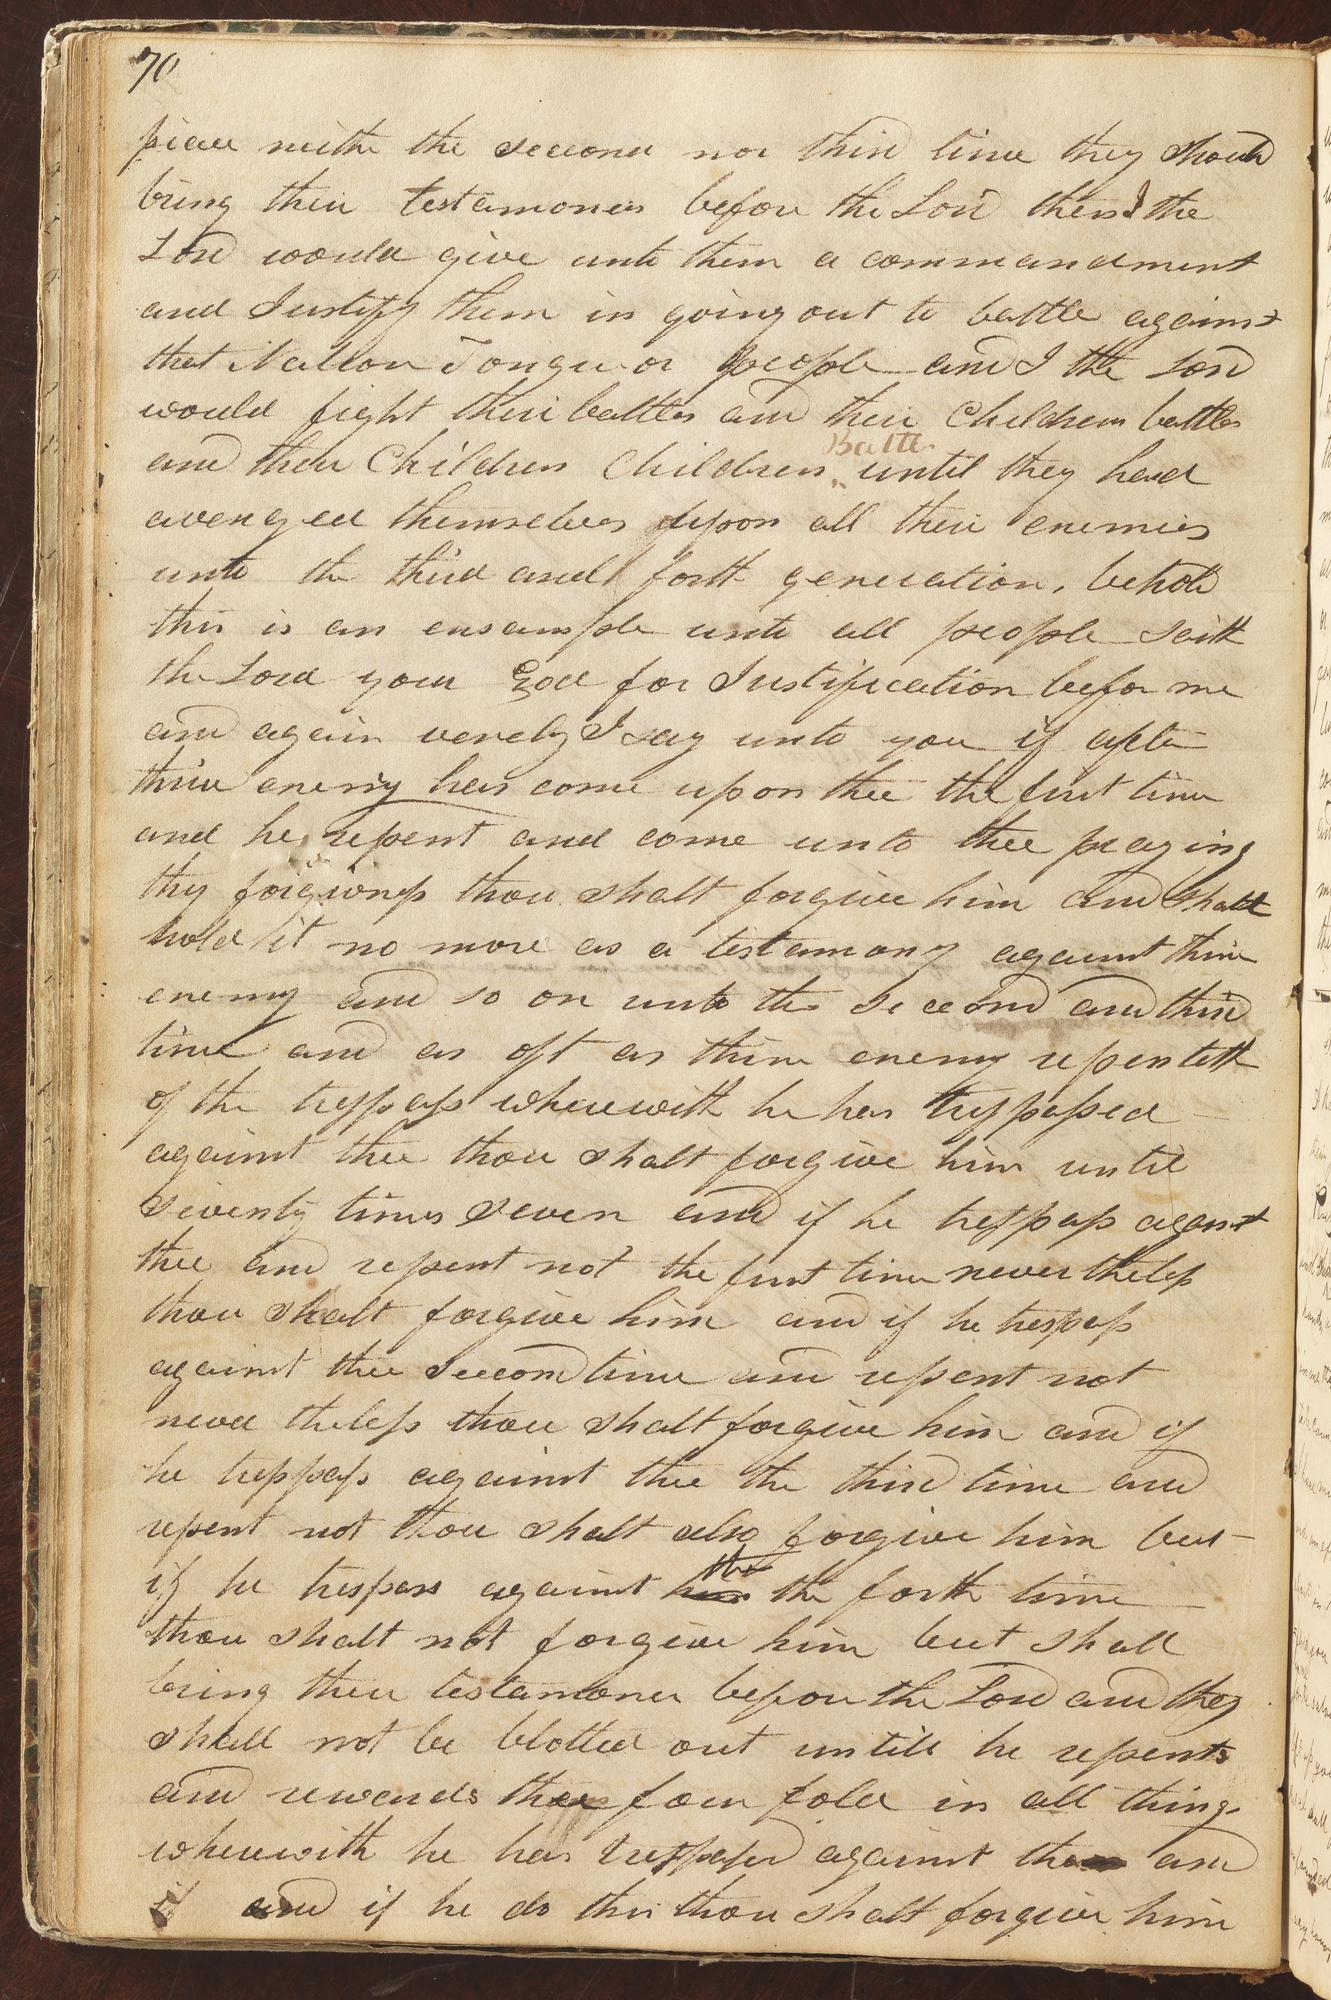 70
piece neithe the second nor third time they should
bring their testamones before the Lord then I the
Lord would give unto them a commandment
and Justify them in going out to battle against
that Nation Tongue or people and I the Lord
would fight their battles and their Childrens battles
and their Children Childrens Battle until they had
avenged themselves upon all their enemies
unto the third and forth generation, behold
this is an ensample unto all people saith
the Lord your God for Justification befor me
and again verely I say unto you if after
thine enemy has come upon thee the first time
and he repent and come unto thee praying
thy forgivness thou shalt forgive him and shalt
hold it no more as a testamony against thine
enemy and so on unto the second and third
time and as oft as thine enemy repenteth
of the tresspass wherewith he has tresspassed
against thee thou shalt forgive him until
seventy times seven and if he tresspass against
thee and repent not the first time never theless
thou shalt forgive him and if he trespass
against thee second time and repent not
never theless thou shalt forgive him and if
he tresspass against thee the third time and
repent not thou shalt also forgive him but
if he trespass against him the the forth time
thou shalt not forgive him but shall
bring their testamones before the Lord and they
shall not be blotted out untill he repents
and rewards thee four fold in all things
wherewith he has tresspassed against thee and
if and if he do this thou shalt forgive him